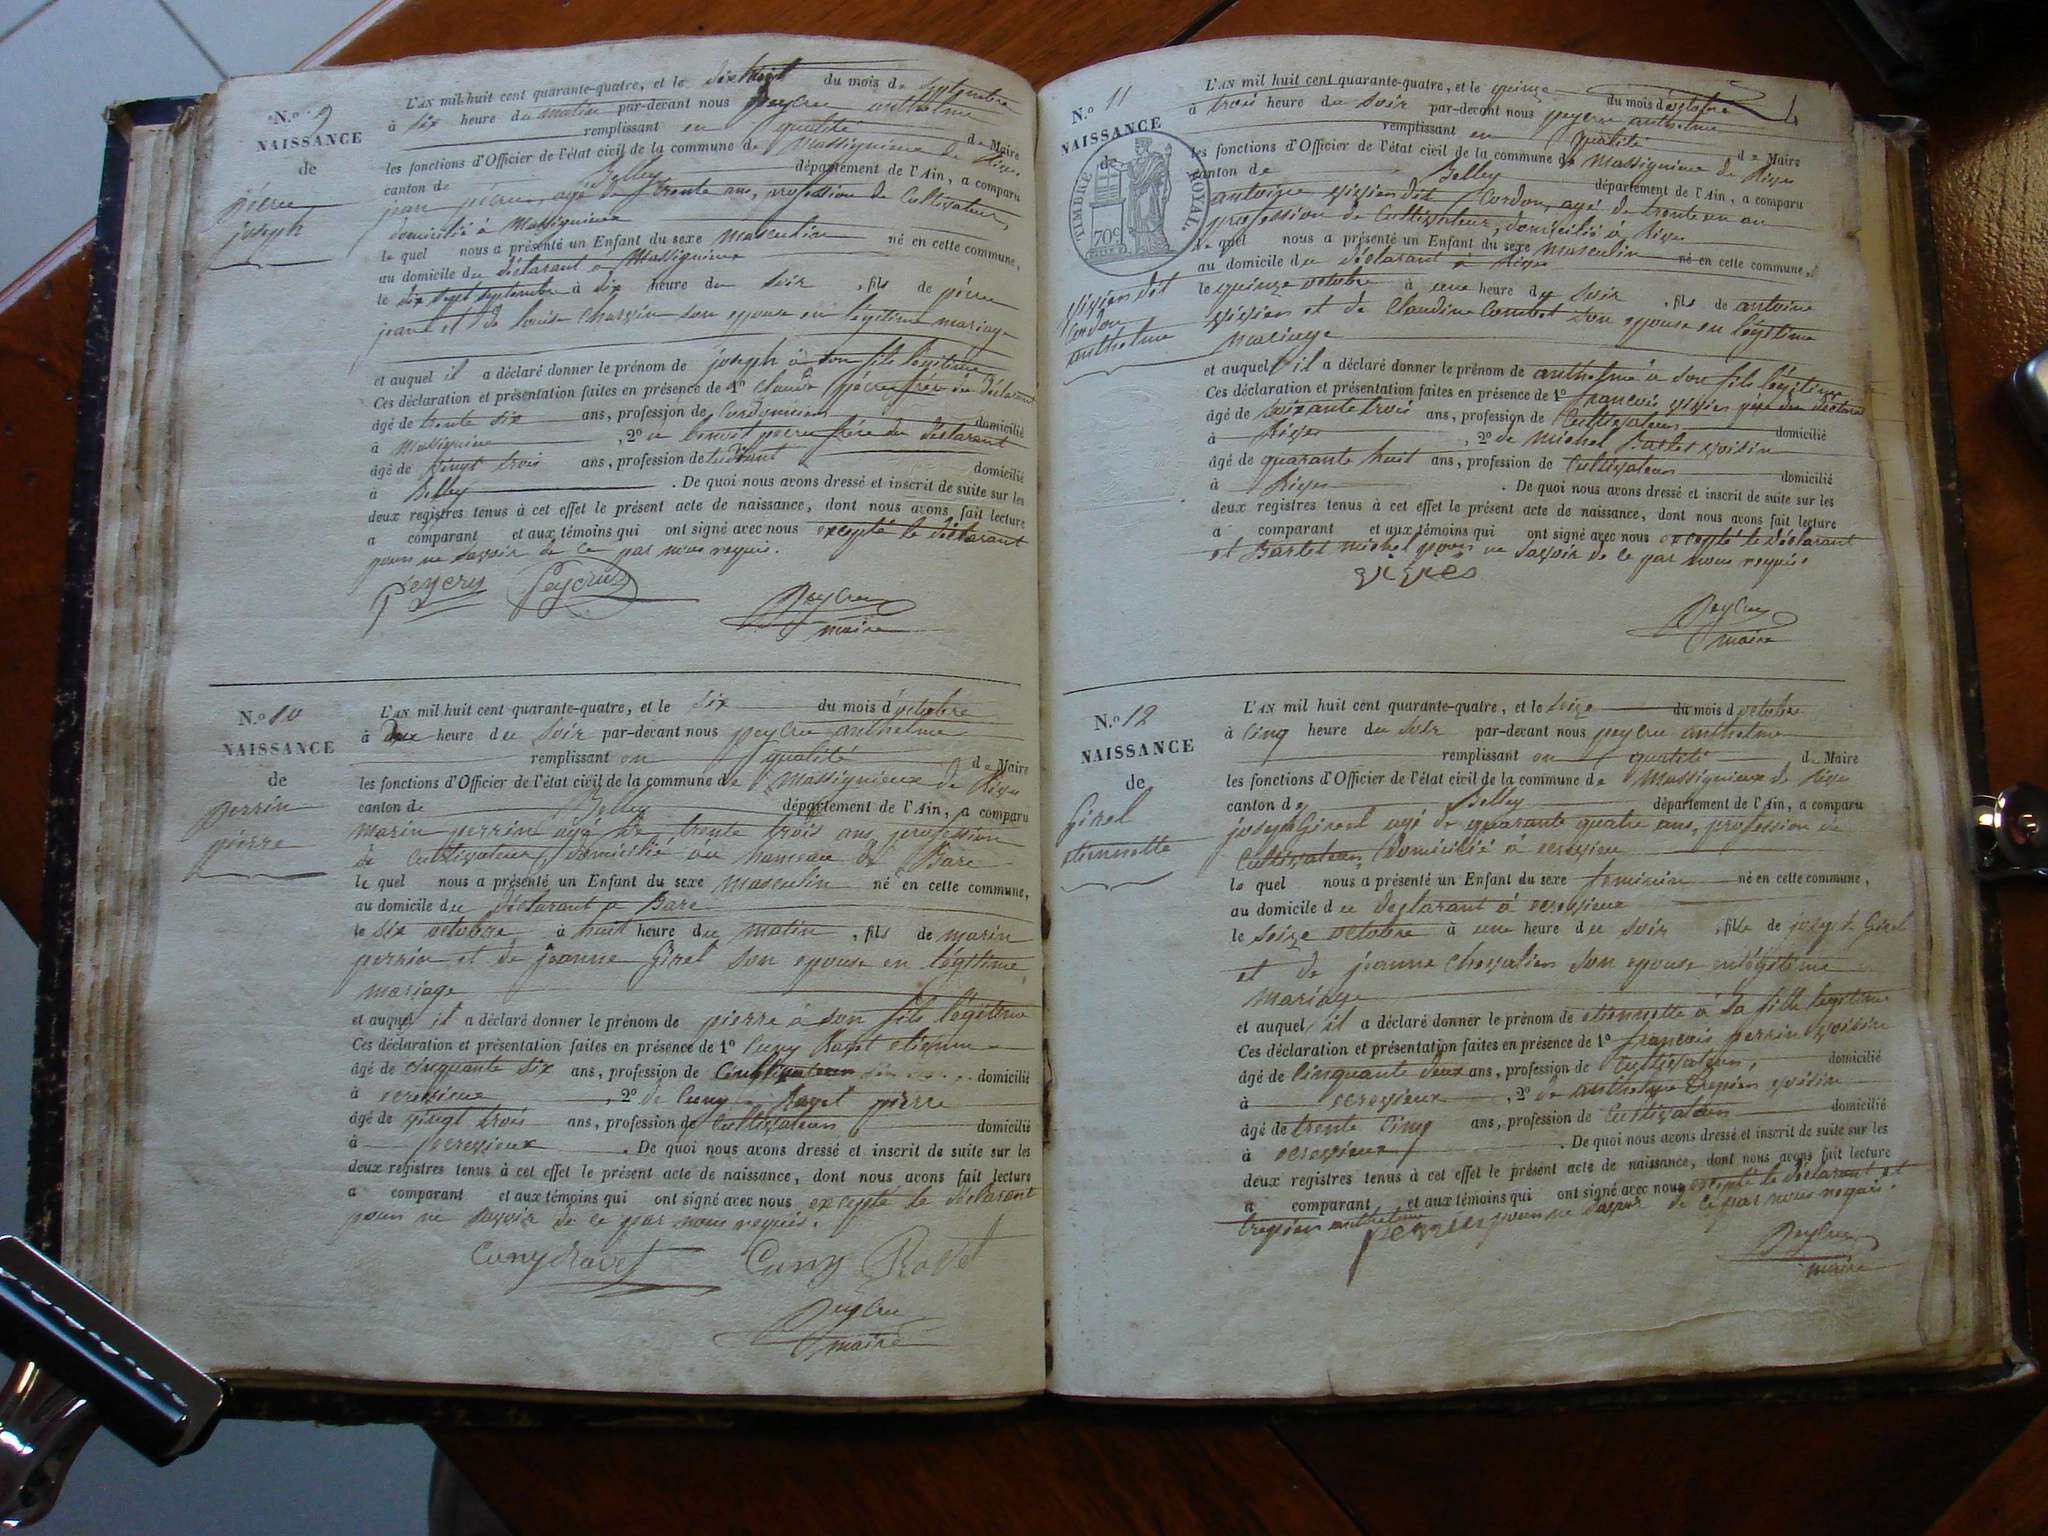 N.º 9
NAISSANCE
de
pierre
joseph
L'AN mil huit cent quarante-quatre, et le dix huit du mois de septembre
à six heure du matin par-devant nous peycru anthelme
remplissant en qualité de Maire
les fonctions d'Officier de l'état civil de la commune de Massignieux de Rives
canton de Belley département de l'Ain, a comparu
jean agé de trente ans, profession de Cultivateur,
domicilié à Massignieux
le quel nous a présenté un Enfant du sexe masculin né en cette commune,
au domicile du déclarant à Massignieux
le dix sept septembre à six heure du soir, fils de
jean et de louise son epouse en legitime mariage
et auquel il a déclaré donner le prénom de joseph à son fils legitime
Ces déclaration et présentation faites en présence de 1º Claude frère du déclarant
âgé de trente six ans, profession de Cordonnier domicilié
à Massignieux, 2º de benoit peycru frère du déclarant
âgé de vingt trois ans, profession de domicilié
à Belley. De quoi nous avons dressé et inscrit de suite sur les
deux registres tenus à cet effet le présent acte de naissance, dont nous avons fait lecture
a comparant et aux témoins qui ont signé avec nous excepté le déclarant
pour ne savoir de ce par nous requis.
Peycru Peycru
Peycru
maire
N.º 10
NAISSANCE
de
perrin
pierre
L'AN mil huit cent quarante-quatre, et le six du mois d'octobre
à deux heure du soir par-devant nous peycru anthelme
remplissant en qualité de Maire
les fonctions d'Officier de l'état civil de la commune de Massignieux de Rives
canton de Belley département de l'Ain, a comparu
marin perrin agé de trente trois ans, profession
de Cultivateur, domicilié au hameau de Bare
le quel nous a présenté un Enfant du sexe masculin né en cette commune,
au domicile du déclarant à Bare
le six octobre à huit heure du matin, fils de marin
perrin et de jeanne Girel son epouse en légitime
mariage
et auquel il a déclaré donner le prénom de pierre à son fils légitime
Ces déclaration et présentation faites en présence de 1º Cuny Ravet etienne
âgé de cinquante six ans, profession de Cultivateur domicilié
à ecrevieux, 2º de Cuny Ravet pierre
âgé de vingt trois ans, profession de Cultivateur domicilié
à ecrevieux. De quoi nous avons dressé et inscrit de suite sur les
deux registres tenus à cet effet le présent acte de naissance, dont nous avons fait lecture
a comparant et aux témoins qui ont signé avec nous excepté le déclarant
pour ne savoir de ce par nous requis.
Cuny Ravet Cuny Ravet
Peycru
maire
N.º 11
NAISSANCE
de
TIMBRE ROYAL
70 c
vivien dit
Cordon
anthelme
L'AN mil huit cent quarante-quatre, et le quinze du mois d'octobre
à trois heure du soir par-devant nous peycru anthelme
remplissant en qualité de Maire
les fonctions d'Officier de l'état civil de la commune de Massignieux de Rives
canton de Belley département de l'Ain, a comparu
antoine vivien dit Cordon, agé de trente un an
profession de Cultivateur, domicilié à Rives
le quel nous a présenté un Enfant du sexe masculin né en cette commune,
au domicile du déclarant à Rives
le quinze octobre à une heure du soir, fils de antoine
vivien et de Claudine Combet son epouse en légitime
mariage
et auquel il a déclaré donner le prénom de anthelme à son fils légitime
Ces déclaration et présentation faites en présence de 1º françois vivien père du déclarant
âgé de soixante trois ans, profession de Cultivateur domicilié
à Rives, 2º de michel Bartet voisin
âgé de quarante huit ans, profession de Cultivateur domicilié
à Rives. De quoi nous avons dressé et inscrit de suite sur les
deux registres tenus à cet effet le présent acte de naissance, dont nous avons fait lecture
a comparant et aux témoins qui ont signé avec nous excepté le déclarant
et Bartet michel pour ne savoir de ce par nous requis.
Peycru
maire
N.º 12
NAISSANCE
de
Girel
etiennette
L'AN mil huit cent quarante-quatre, et le seize du mois d'octobre
à cinq heure du soir par-devant nous peycru anthelme
remplissant en qualité de Maire
les fonctions d'Officier de l'état civil de la commune de Massignieux de Rives
canton de Belley département de l'Ain, a comparu
joseph Girel agé de quarante quatre ans, profession de
Cultivateur, domicilié à ecrevieux
le quel nous a présenté un Enfant du sexe feminin né en cette commune,
au domicile du déclarant à ecrevieux
le seize octobre à une heure du soir, fille de joseph Girel
et de jeanne Chevalier son epouse en légitime
mariage
et auquel il a déclaré donner le prénom de etiennette à sa fille legitime
Ces déclaration et présentation faites en présence de 1º françois perrin voisin
âgé de cinquante deux ans, profession de Cultivateur, domicilié
à ecrevieux, 2º de anthelme voisin
âgé de trente cinq ans, profession de Cultivateur domicilié
à ecrevieux. De quoi nous avons dressé et inscrit de suite sur les
deux registres tenus à cet effet le présent acte de naissance, dont nous avons fait lecture
a comparant et aux témoins qui ont signé avec nous excepté le déclarant et
anthelme pour ne savoir de ce par nous requis.
perrin
Peycru
maire